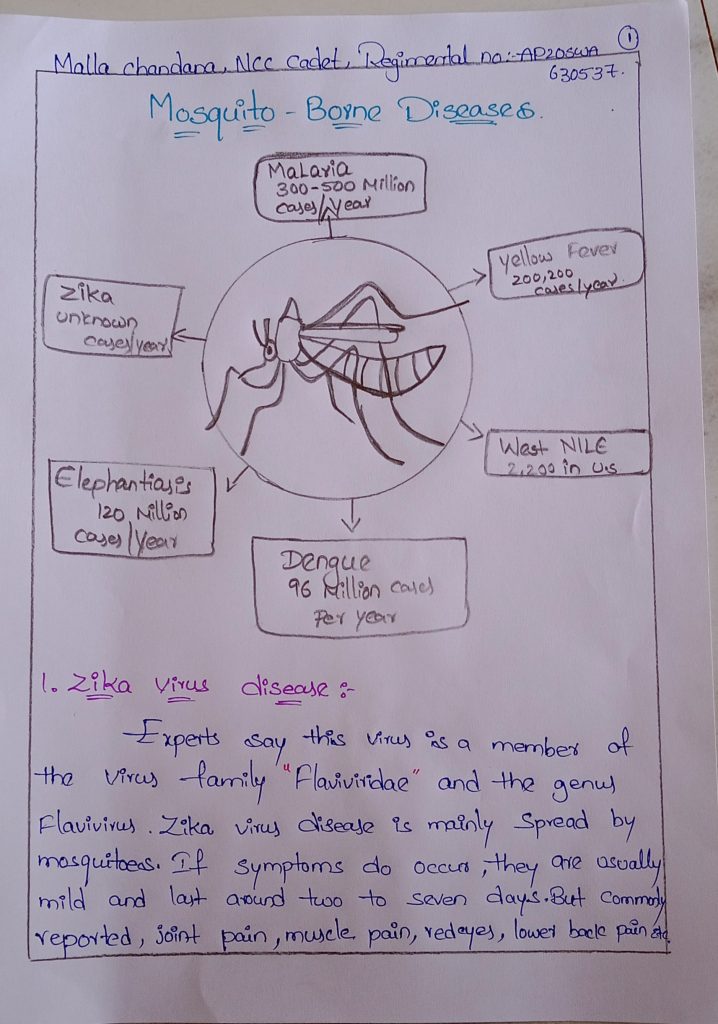 Malla chandana, Ncc Cadet, Regimental no:- AP20SWA
630537.
1
Mosquito - Borne Diseases.
Malaria
300-500 Million
cases/Year
Yellow Fever
200,200
cases/year.
Zika
unknown
cases/year
West NILE
2,200 in U.S
Elephantiasis
120 Million
cases/Year
Dengue
96 Million cases
Per year
1. Zika virus disease :-
Experts say this virus is a member of
the virus family "Flaviviridae" and the genus
Flavivirus. Zika virus disease is mainly Spread by
mosquitoes. If symptoms do occur, they are usually
mild and last around two to seven days. But commonly
reported, joint pain, muscle pain, redeyes, lower back pain etc.